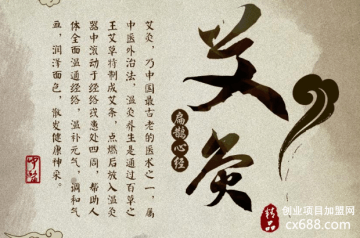 艾灸
扁鹊心经
艾灸，乃中国最古老的医术之一，属
中医外治法，温灸养生是通过百草之
王艾草特制成艾条，点燃后放入温灸
器中滚动于经络或患处四周，帮助人
体全面温通经络，温补元气，调和气
血，润泽面色，散发健康神采。
精品
创业项目加盟网
cx688.com